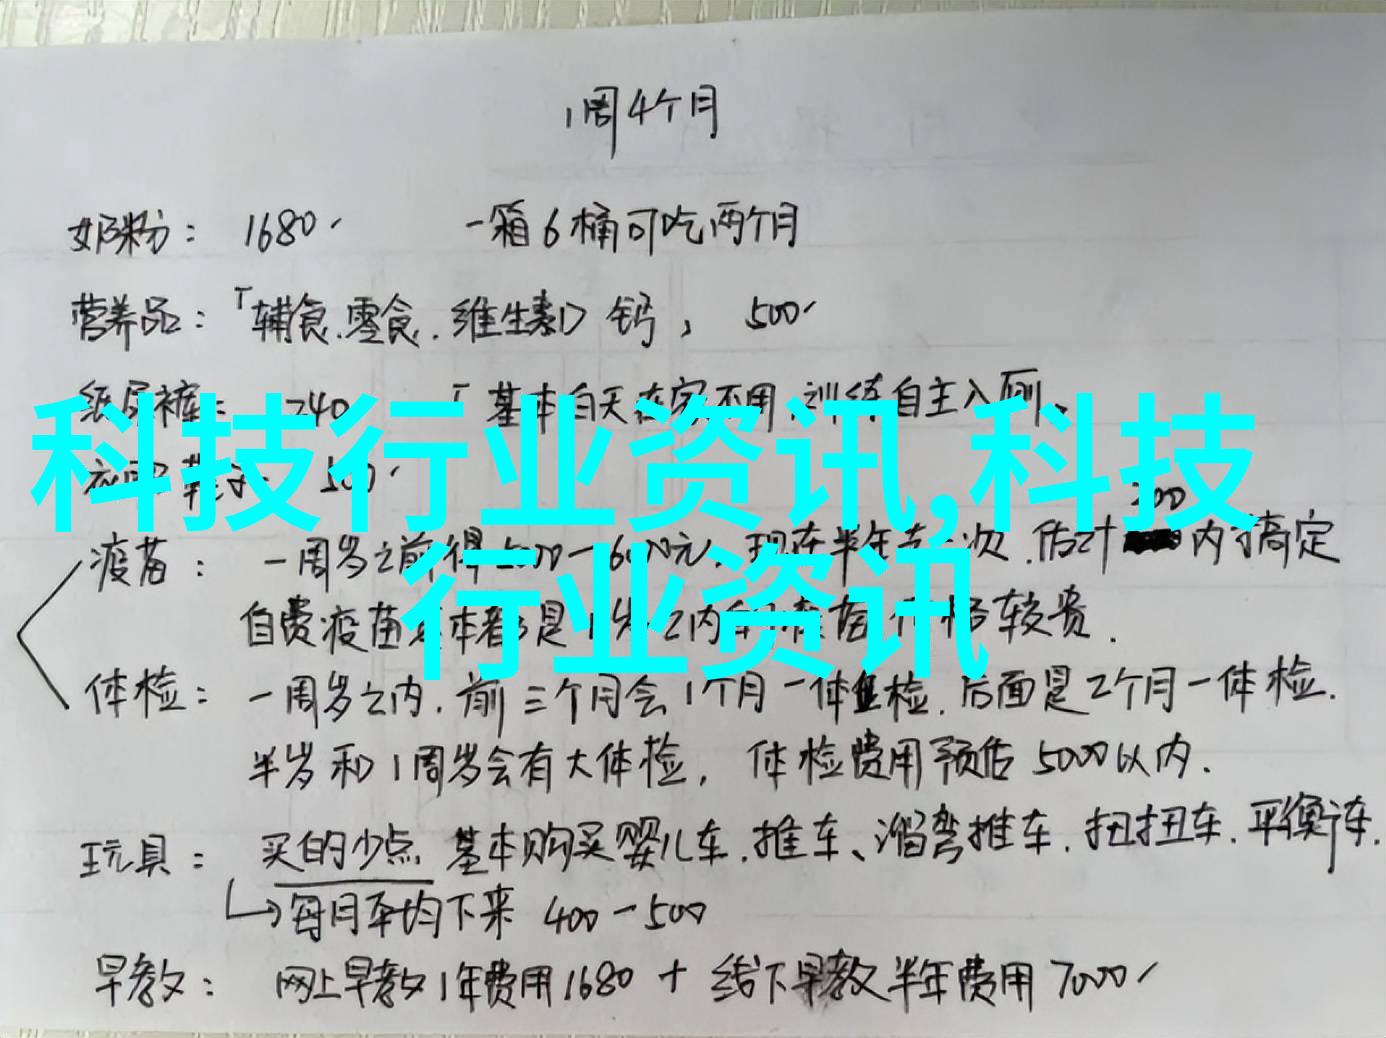 1周4个月
奶粉： 1680 一箱6桶可吃两个月
营养品：「辅食.零食.维生素D 钙， 500
纸尿裤： 240 「基本白天在家不用,训练自主入厕、
科技行业资讯,科技
行业资讯
鞋子： 500
疫苗： 一周岁之前得 5000-6000元. 现在半年去一次.估计 200 内可搞定
自费疫苗基本都是1岁之内 价格较贵.
体检： 一周岁之内.前三个月会1个月一体检.后面是2个月一体检.
半岁和1周岁会有大体检， 体检费用预估5000以内.
玩具： 买的少点 基本购买婴儿车.推车、溜弯推车.扭扭车.平衡车.
每月平均下来 400-500
早教： 网上早教1年费用1680 + 线下早教半年费用7000